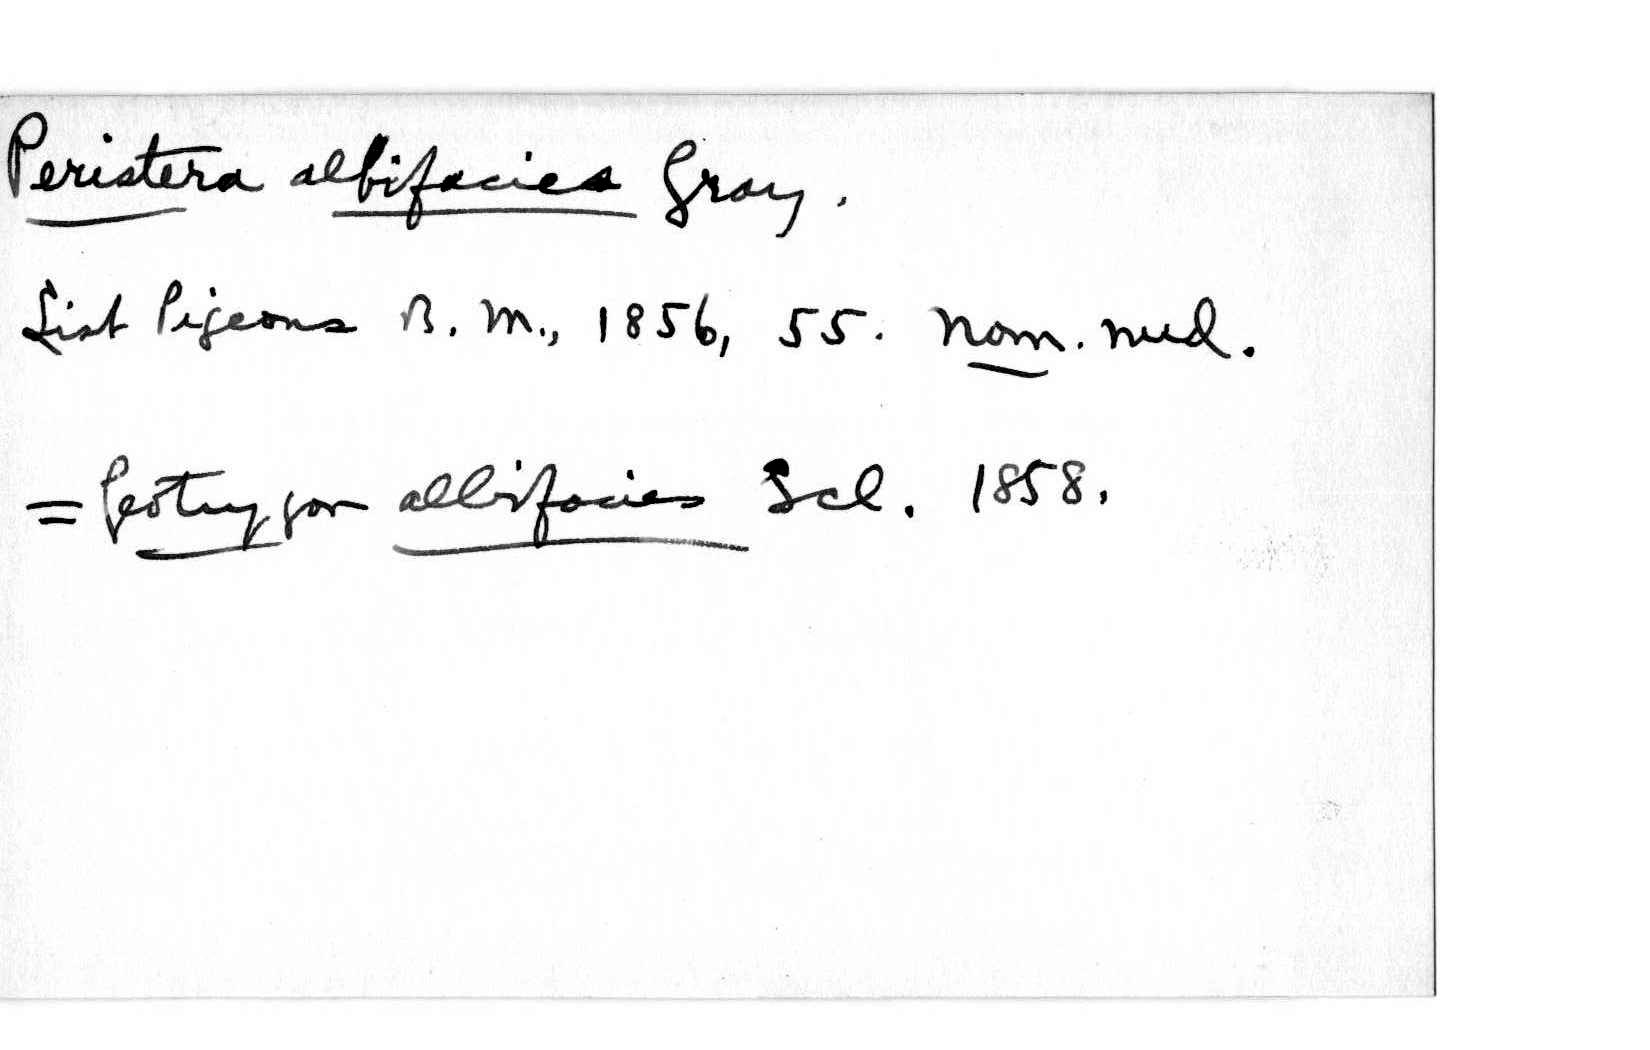 Peristera albifacies Gray.
List Pigeons B. M., 1856, 55. Nom. nud.
= Geotrygon albifacies Scl. 1858.